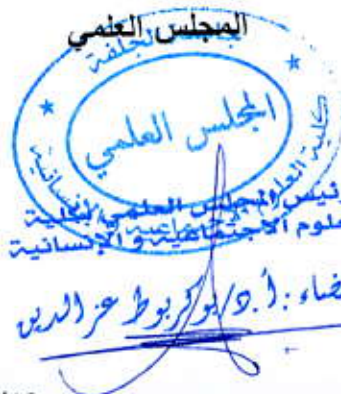 المجلس العلمي
جامعة الجلفة
المجلس العلمي
كلية العلوم الاجتماعية والإنسانية
رئيس المجلس العلمي لكلية
علوم الاجتماعية و الإنسانية
ضاء : أ.د/بوكربوط عز الدين